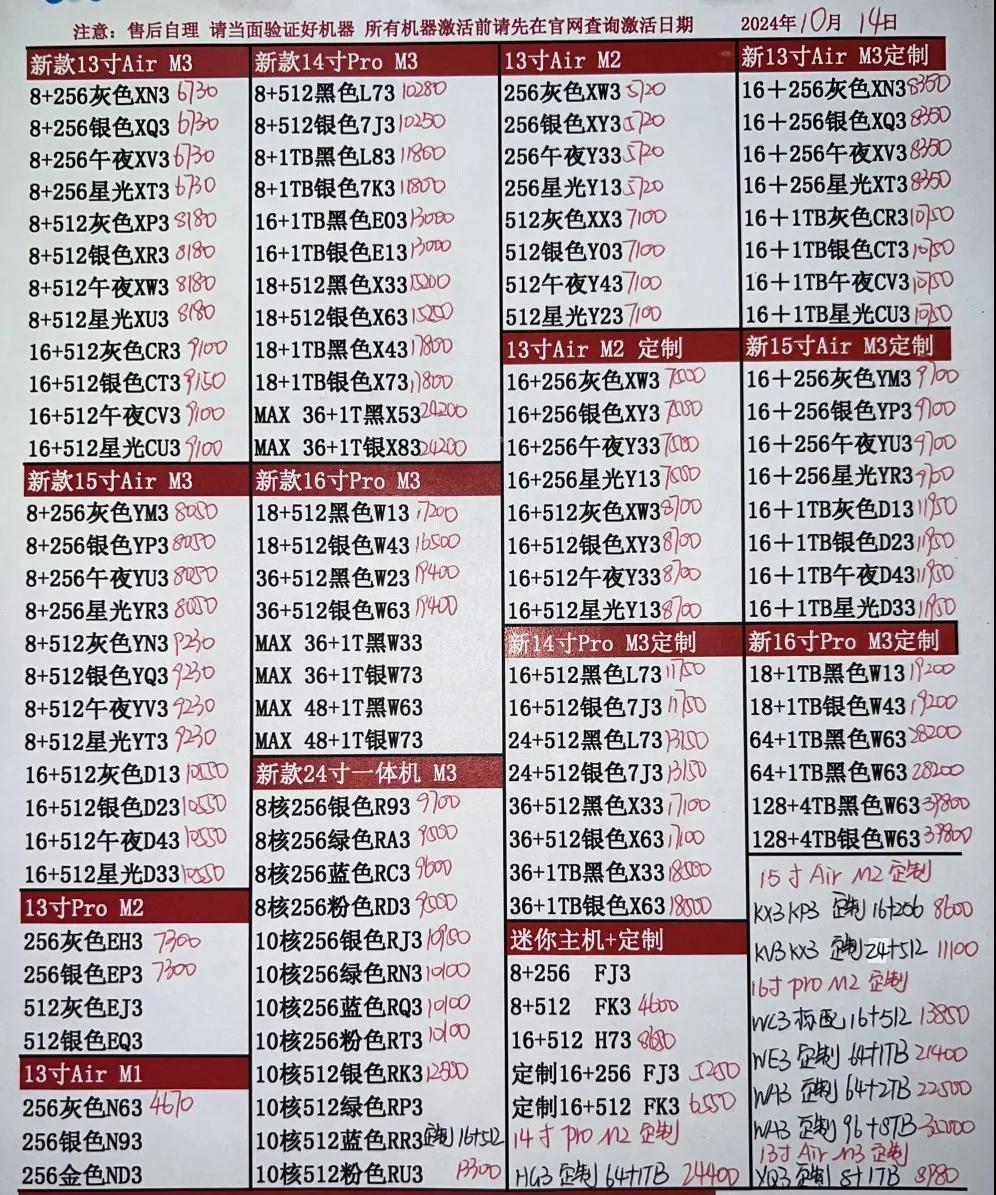 注意: 售后自理 请当面验证好机器 所有机器激活前请先在官网查询激活日期 2024年10月14日
新款13寸Air M3
8+256灰色XN3 6730
8+256银色XQ3 6730
8+256午夜XV3 6730
8+256星光XT3 6730
8+512灰色XP3 8180
8+512银色XR3 8180
8+512午夜XW3 8180
8+512星光XU3 8180
16+512灰色CR3 9100
16+512银色CT3 9150
16+512午夜CV3 9100
16+512星光CU3 9100
新款15寸Air M3
8+256灰色YM3 8050
8+256银色YP3 8050
8+256午夜YU3 8050
8+256星光YR3 8050
8+512灰色YN3 9230
8+512银色YQ3 9230
8+512午夜YV3 9230
8+512星光YT3 9230
16+512灰色D13 10550
16+512银色D23 10550
16+512午夜D43 10550
16+512星光D33 10550
13寸Pro M2
256灰色EH3 7300
256银色EP3 7300
512灰色EJ3
512银色EQ3
13寸Air M1
256灰色N63 4670
256银色N93
256金色ND3
新款14寸Pro M3
8+512黑色L73 10280
8+512银色7J3 10250
8+1TB黑色L83 11800
8+1TB银色7K3 11800
16+1TB黑色E03 13000
16+1TB银色E13 13000
18+512黑色X33 15200
18+512银色X63 15200
18+1TB黑色X43 17800
18+1TB银色X73 17800
MAX 36+1T黑X53 24200
MAX 36+1T银X83 24200
新款16寸Pro M3
18+512黑色W13 17200
18+512银色W43 16500
36+512黑色W23 19400
36+512银色W63 19400
MAX 36+1T黑W33
MAX 36+1T银W73
MAX 48+1T黑W63
MAX 48+1T银W73
新款24寸一体机 M3
8核256银色R93 9700
8核256绿色RA3 9000
8核256蓝色RC3 9600
8核256粉色RD3 9000
10核256银色RJ3 10950
10核256绿色RN3 10100
10核256蓝色RQ3 10100
10核256粉色RT3 10100
10核512银色RK3 12500
10核512绿色RP3
10核512蓝色RR3 定制 16+512
10核512粉色RU3 13300
13寸Air M2
256灰色XW3 5720
256银色XY3 5720
256午夜Y33 5720
256星光Y13 5720
512灰色XX3 7100
512银色Y03 7100
512午夜Y43 7100
512星光Y23 7100
13寸Air M2 定制
16+256灰色XW3
16+256银色XY3
16+256午夜Y33
16+256星光Y13
16+512灰色XW3 8700
16+512银色XY3 8700
16+512午夜Y33 8700
16+512星光Y13 8700
新14寸Pro M3定制
16+512黑色L73 11750
16+512银色7J3 11750
24+512黑色L73 13150
24+512银色7J3 13150
36+512黑色X33 17100
36+512银色X63 17100
36+1TB黑色X33 18500
36+1TB银色X63 18500
迷你主机+定制
8+256 FJ3
8+512 FK3 4600
16+512 H73 8650
定制16+256 FJ3 5250
定制16+512 FK3 6550
14寸 pro M2 定制
HG3 定制 64+1TB 24400
新13寸Air M3定制
16+256灰色XN3 8350
16+256银色XQ3 8350
16+256午夜XV3 8350
16+256星光XT3 8350
16+1TB灰色CR3 10750
16+1TB银色CT3 10750
16+1TB午夜CV3 10750
16+1TB星光CU3 10750
新15寸Air M3定制
16+256灰色YM3 9700
16+256银色YP3 9700
16+256午夜YU3 9700
16+256星光YR3 9700
16+1TB灰色D13 11950
16+1TB银色D23 11950
16+1TB午夜D43 11950
16+1TB星光D33 11950
新16寸Pro M3定制
18+1TB黑色W13 19200
18+1TB银色W43 19200
64+1TB黑色W63 28200
64+1TB黑色W63 28200
128+4TB黑色W63 39800
128+4TB银色W63 39800
15寸 Air M2 定制
KX3 KP3 定制 16+256 8600
KV3 KX3 定制 24+512 11100
16寸 pro M2 定制
WC3 标配 16+512 13850
WE3 定制 64+1TB 21400
WA3 定制 64+2TB 22500
WA3 定制 96+8TB 32000
13寸 Air M3 定制
XQ3 定制 8+1TB 8980